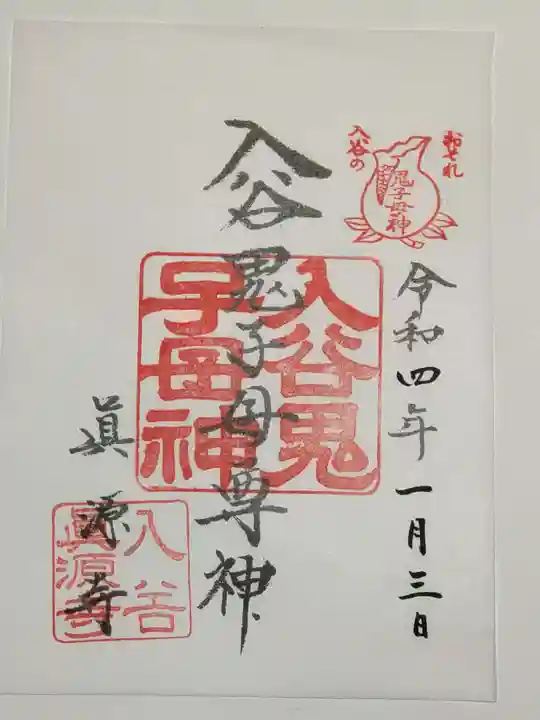 おそれ
入谷の
鬼子母神
令和四年一月三日
入谷鬼子母尊神
入谷鬼
子母神
眞源寺
入谷
眞源寺